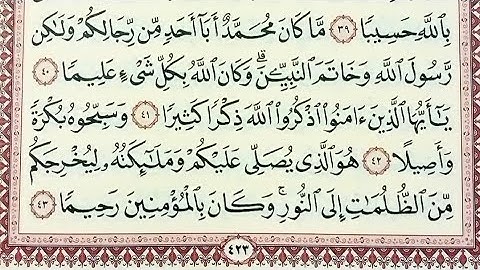 بِٱللَّهِ حَسِيبًا ٣٩ مَّا كَانَ مُحَمَّدٌ أَبَآ أَحَدٍ مِّن رِّجَالِكُمْ وَلَـٰكِن
رَّسُولَ ٱللَّهِ وَخَاتَمَ ٱلنَّبِيِّـۧنَ ۗ وَكَانَ ٱللَّهُ بِكُلِّ شَىْءٍ عَلِيمًا ٤٠
يَـٰٓأَيُّهَا ٱلَّذِينَ ءَامَنُوا۟ ٱذْكُرُوا۟ ٱللَّهَ ذِكْرًا كَثِيرًا ٤١ وَسَبِّحُوهُ بُكْرَةً
وَأَصِيلًا ٤٢ هُوَ ٱلَّذِى يُصَلِّى عَلَيْكُمْ وَمَلَـٰٓئِكَتُهُۥ لِيُخْرِجَكُم
مِّنَ ٱلظُّلُمَـٰتِ إِلَى ٱلنُّورِ ۚ وَكَانَ بِٱلْمُؤْمِنِينَ رَحِيمًا ٤٣
٤٢٣